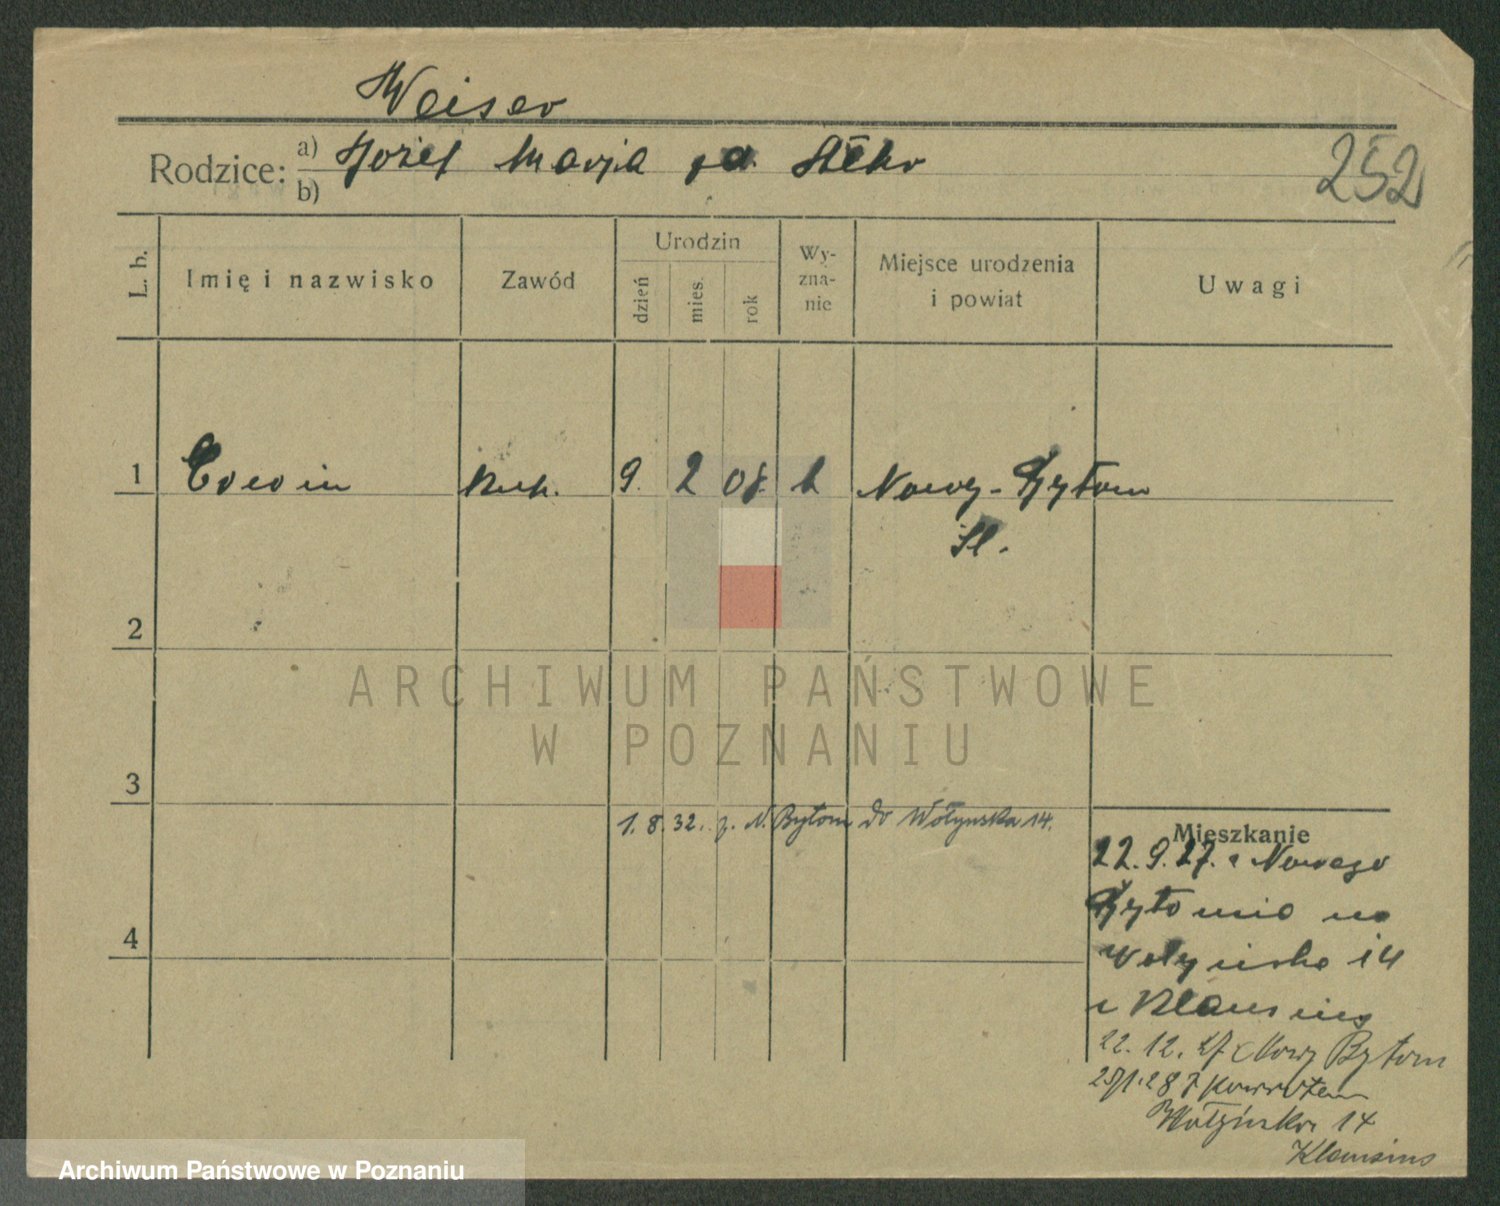 Weiser
Rodzice: a) Józef Marja
b)
252
L. b.
Imię i nazwisko
Zawód
Urodzin
dzień
mies.
rok
Wy-
zna-
nie
Miejsce urodzenia
i powiat
Uwagi
1 9. 2 08. k Nowy-Bytom
Śl.
2
3
1. 8. 32. z. N. Bytom do Wołynska 14.
Mieszkanie
22. 9. 27. z Nowego
Bytomia na
Wołyńska 14
Klausius
4
22. 12. 27 Nowy Bytom
z powrotem
Wołyńska 14
Klausius
ARCHIWUM PAŃSTWOWE
W POZNANIU
Archiwum Państwowe w Poznaniu